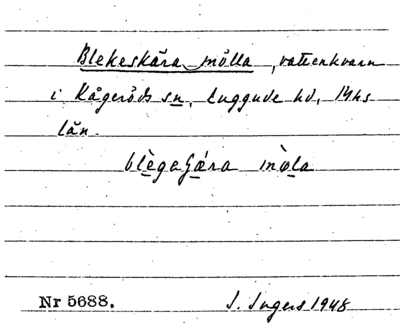 Blekeskåra mölla, vattenkvarn
i Kågeröds sn, Luggude hd, Mhs
län.
blègaʃǽra mø̀la
Nr 5688.
I. Ingers 1948